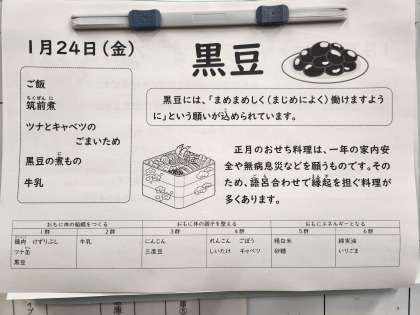 1月24日（金）
黒豆
ご飯
筑前煮
ツナとキャベツの
ごまいため
黒豆の煮もの
牛乳
黒豆には、「まめまめしく（まじめによく）働けますよう
に」という願いが込められています。
正月のおせち料理は、一年の家内安
全や無病息災などを願うものです。そ
のため、語呂合わせで縁起を担ぐ料理が
多くあります。
おもに体の組織をつくる おもに体の調子を整える おもにエネルギーとなる
1群 2群 3群 4群 5群 6群
鶏肉 けずりぶし 牛乳 にんじん れんこん ごぼう 精白米 綿実油
ツナ缶 三度豆 しいたけ キャベツ 砂糖 いりごま
黒豆